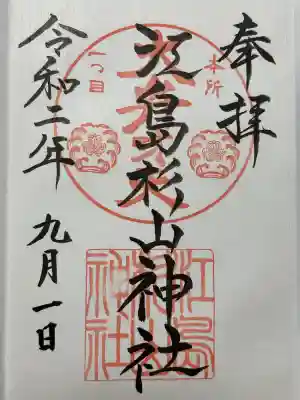 奉拝
本所
一つ目
江島杉山神社
令和二年
九月一日
江島
神社